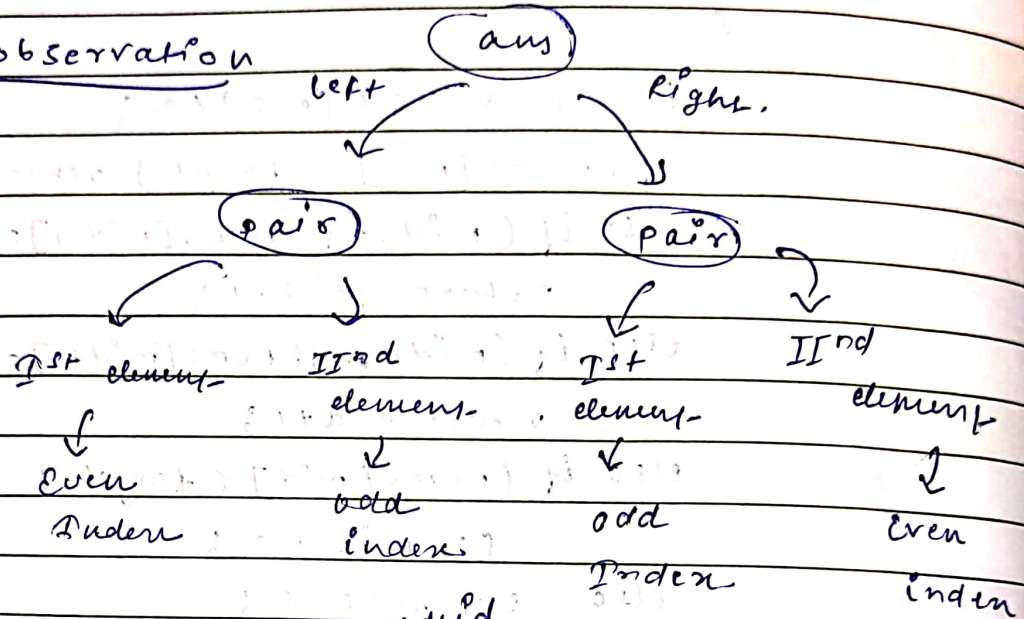 observation ans
left Right.
pair pair
Ist element IInd element Ist element IInd element
Even Index odd index odd Index Even index